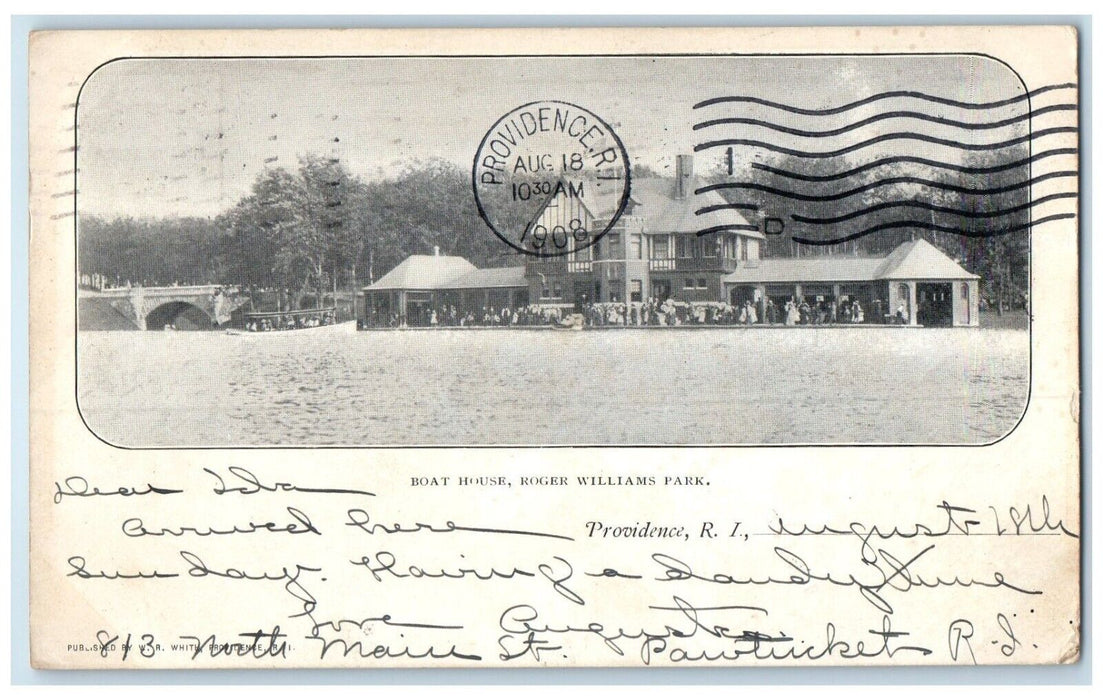 PROVIDENCE, R.I.
AUG 18
10 30 AM
1908
1
D
BOAT HOUSE, ROGER WILLIAMS PARK.
Dear Ida
arrived here
Providence, R. I., August 18th
Sunday. Having a dandy time
love Augusta
PUBLISHED BY W. R. WHITE, PROVIDENCE, R. I.
813 North Main St. Pawtucket R.I.